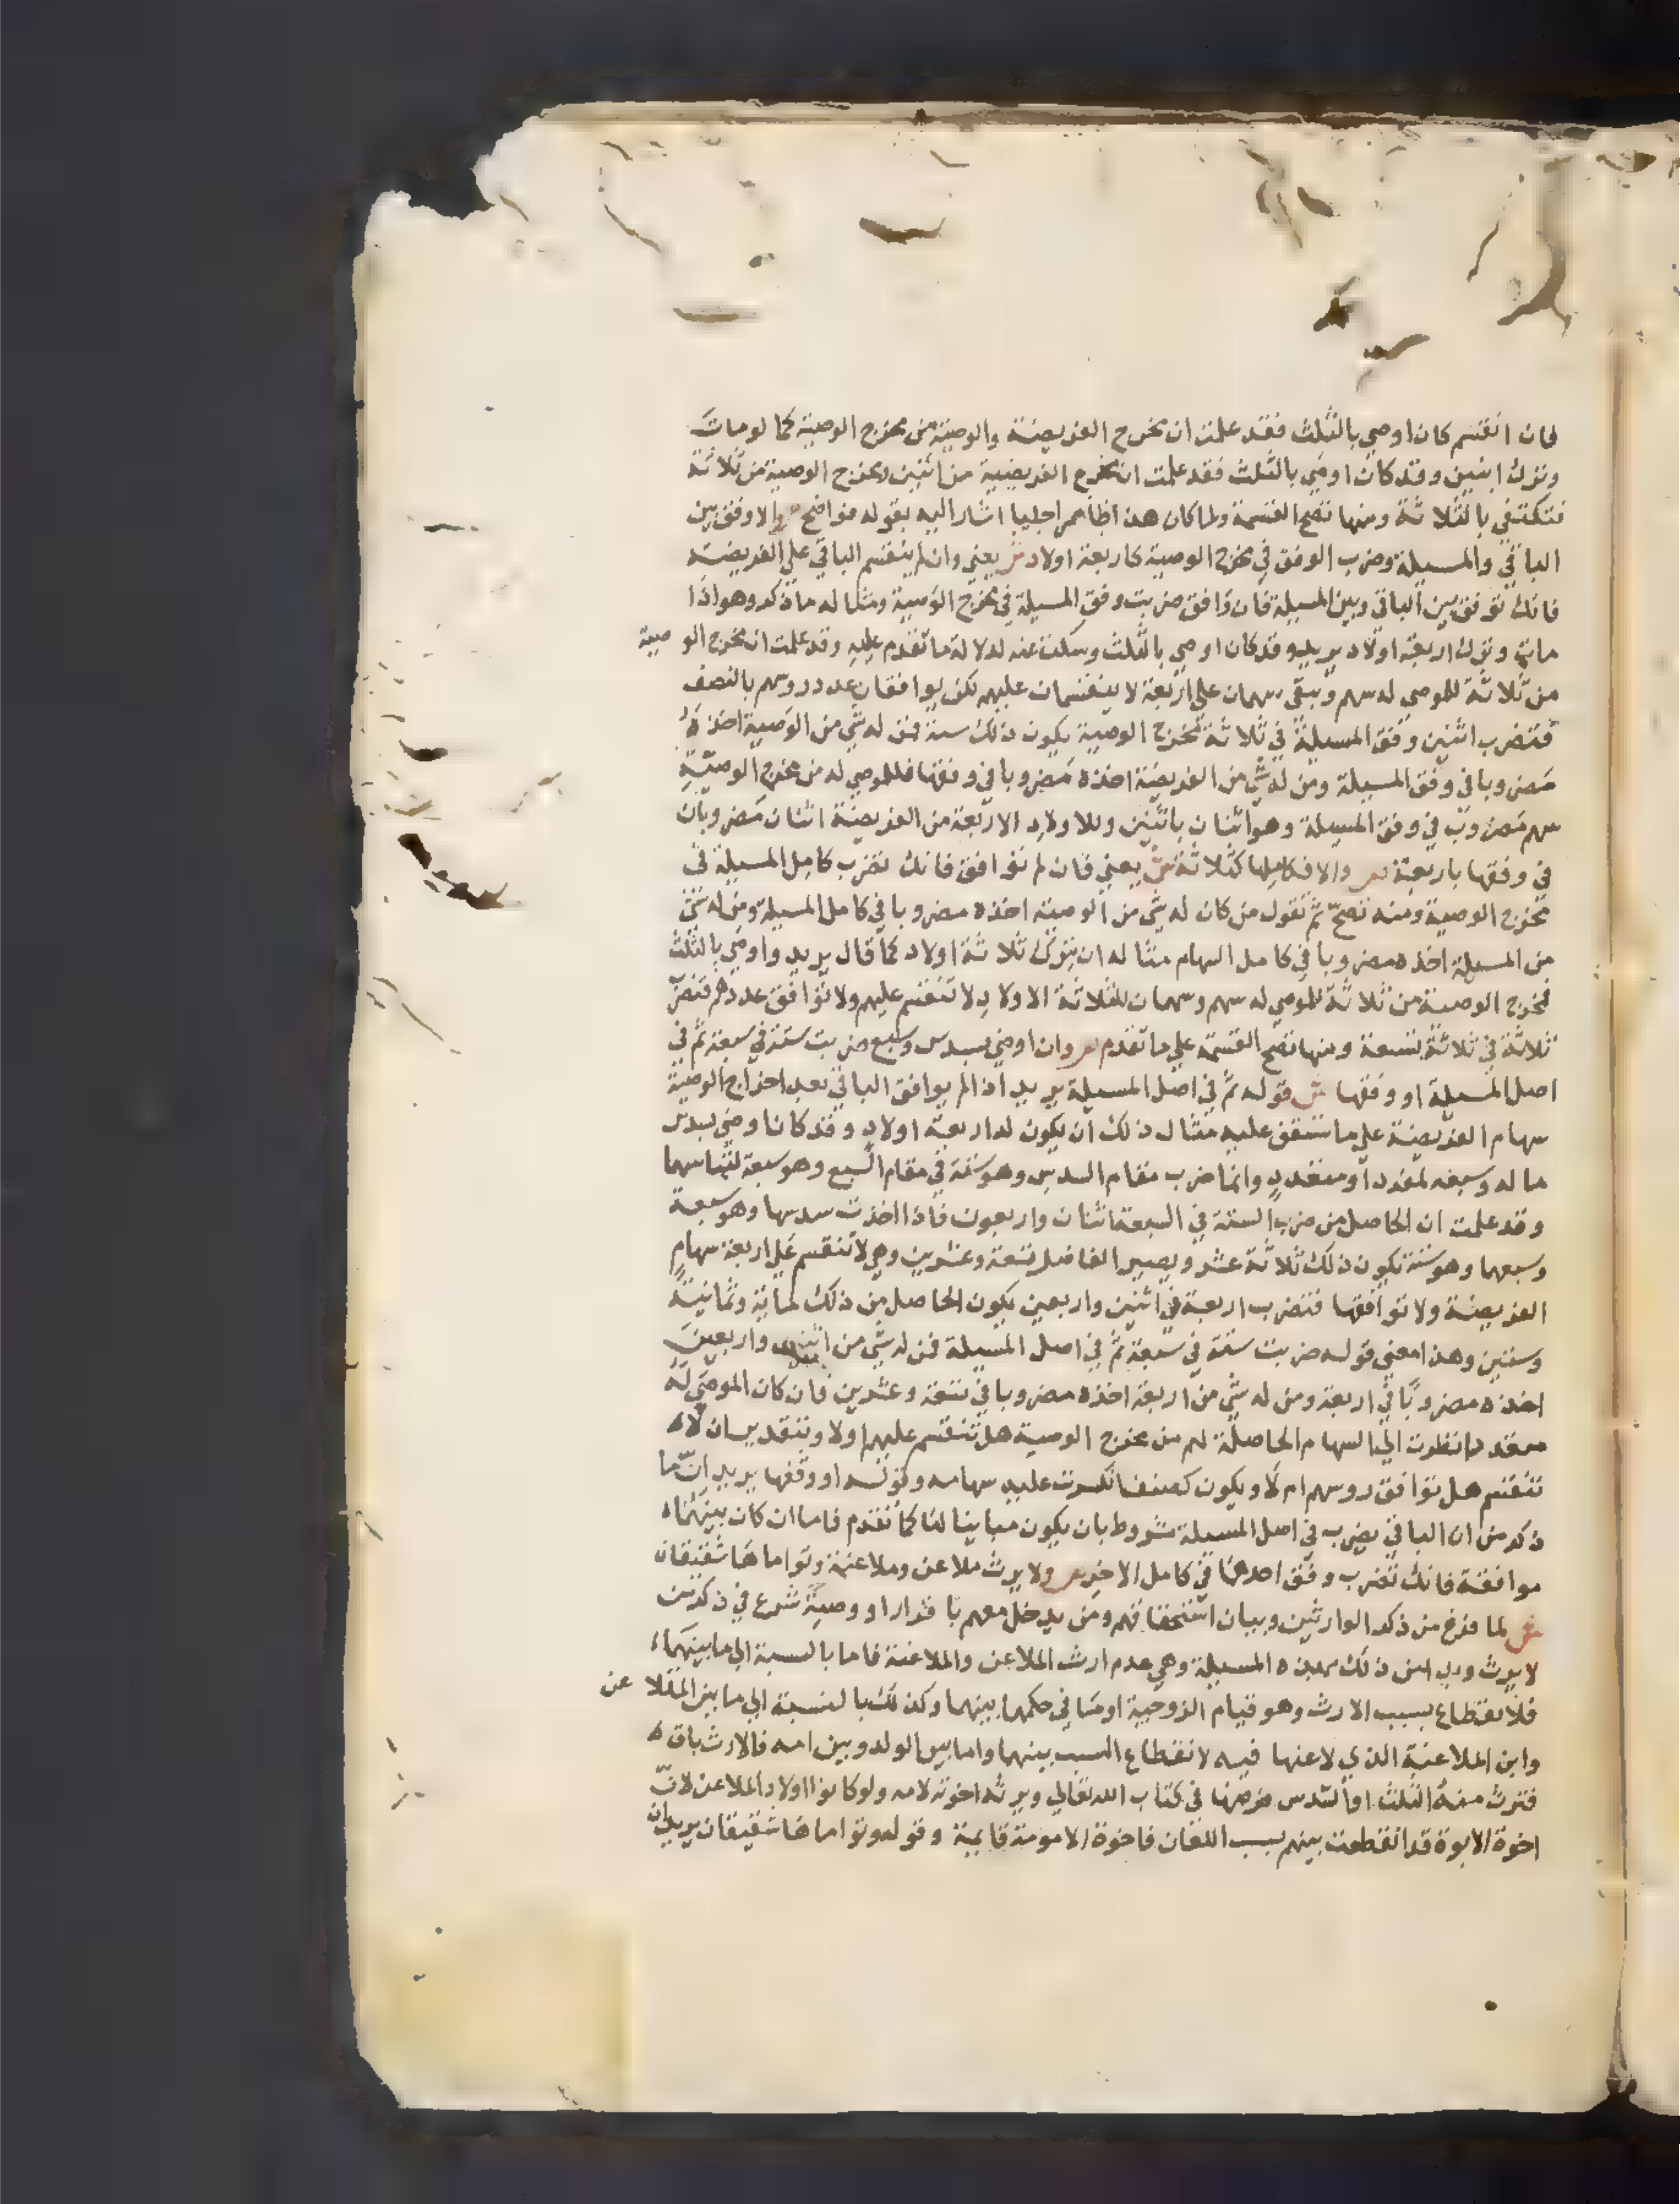 فان انقسم كان اوصي بالثلث فقد علمت ان مخرج الفريضة والوصية من مخرج الوصية كما لو مات
وترك ابنين وقد كان اوصي بالثلث فقد علمت ان مخرج الفريضية من اثنين ومخرج الوصية من ثلاثة
فتكتفي بالثلاثة ومنها تصح القسمة ولما كان هذا ظاهرا جليا اشار اليه بقوله فواضح ص والا وفق بين
الباقي والمسيلة وضرب الوفق في مخرج الوصية كاربعة اولاد ش يعني وان لم ينقسم الباقي علي الفريضة
فانك توفق بين الباقي وبين المسيلة فان وافق ضربت وفق المسيلة في مخرج الوصية ومثاله ما ذكر وهو اذا
مات وترك اربعة اولاد يريد وقد كان اوصي بالثلث وسكت عنه لدلالة ما تقدم عليه وقد علمت ان مخرج الوصية
من ثلاثة للموصي له سهم وتبقي سهمان علي اربعة لا ينقسمان عليهم لكن يوافقان عدد روسهم بالنصف
فتضرب اثنين وفق المسيلة في ثلاثة مخرج الوصية يكون ذلك ستة فمن له شي من الوصية اخذه
مضروبا في وفق المسيلة ومن له شي من الفريضة اخذه مضروبا في وفقها فللموصي له من مخرج الوصية
سهم مضروب في وفق المسيلة وهو اثنان باثنين وللاولاد الاربعة من الفريضة اثنان مضروبان
في وفقها باربعة ص والا فكاملها كثلاثة ش يعني فان لم توافق فانك تضرب كامل المسيلة في
مخرج الوصية ومنه تصح ثم تقول من كان له شي من الوصية اخذه مضروبا في كامل المسيلة ومن له شي
من المسيلة اخذه مضروبا في كامل السهام مثاله ان يترك ثلاثة اولاد كما قال يريد واوصي بالثلث
فمخرج الوصية من ثلاثة للموصي له سهم وسهمان للثلاثة الاولاد لا تنقسم عليهم ولا توافق عددهم فتضرب
ثلاثة في ثلاثة بتسعة ومنها تصح القسمة علي ما تقدم ص وان اوصي بسدس وسبع ضربت ستة في سبعة ثم في
اصل المسيلة او وفقها ش قوله ثم في اصل المسيلة يريد اذا لم يوافق الباقي بعد اخراج الوصية
سهام الفريضة علي ما ستقف عليه مثال ذلك ان يكون له اربعة اولاد وقد كان اوصي بسدس
ماله وسبعه لمفرد او متعدد وانما ضرب مقام السدس وهو ستة في مقام السبع وهو سبعة لتباينهما
وقد علمت ان الحاصل من ضرب الستة في السبعة اثنان واربعون فاذا اخذت سدسها وهو سبعة
وسبعها وهو ستة تكون ذلك ثلاثة عشر ويصير الفاضل تسعة وعشرين وهي لا تنقسم علي اربعة سهام
الفريضة ولا توافقها فتضرب اربعة في اثنين واربعين يكون الحاصل من ذلك مماية وثمانية
وستين وهذا معني قوله ضربت ستة في سبعة ثم في اصل المسيلة فمن له شي من اثنين واربعين
اخذه مضروبا في اربعة ومن له شي من اربعة اخذه مضروبا في تسعة وعشرين فان كان الموصي له
متعددا نظرت الي السهام الحاصلة لهم من مخرج الوصية هل تنقسم عليهم اولا وبتقدير ان لا
تنقسم هل توافق روسهم ام لا ويكون كصنف انكسرت عليه سهامه وقوله او وفقها يريد ان ما
ذكر من ان الباقي يضرب في اصل المسيلة مشروط بان يكون مباينا لها كما تقدم فاما ان كان بينهما
موافقة فانك تضرب وفق احدهما في كامل الاخر ص ولا يرث ملاعن وملاعنة وتواماها شقيقان
ش لما فرغ من ذكر الوارثين وبيان استحقاقهم ومن يدخل معهم باقرار او وصية شرع في ذكر من
لا يرث وبدا من ذلك بهذه المسيلة وهي عدم ارث الملاعن والملاعنة فاما بالنسبة الي ما بينهما
فلانقطاع سبب الارث وهو قيام الزوجية او ما في حكمها بينهما وكذلك بالنسبة الي ما بين الملاعن
وابن الملاعنة الذي لاعنها فيه لانقطاع النسب بينهما واما بين الولد وبين امه فالارث باق
فترث منه الثلث او السدس فرضها في كتاب الله تعالي ويرثه اخوته لامه ولو كانوا اولاد الملاعن لان
اخوة الابوة قد انقطعت بينهم بسبب اللعان فاخوة الامومة قايمة وقوله وتواماها شقيقان يريد ان